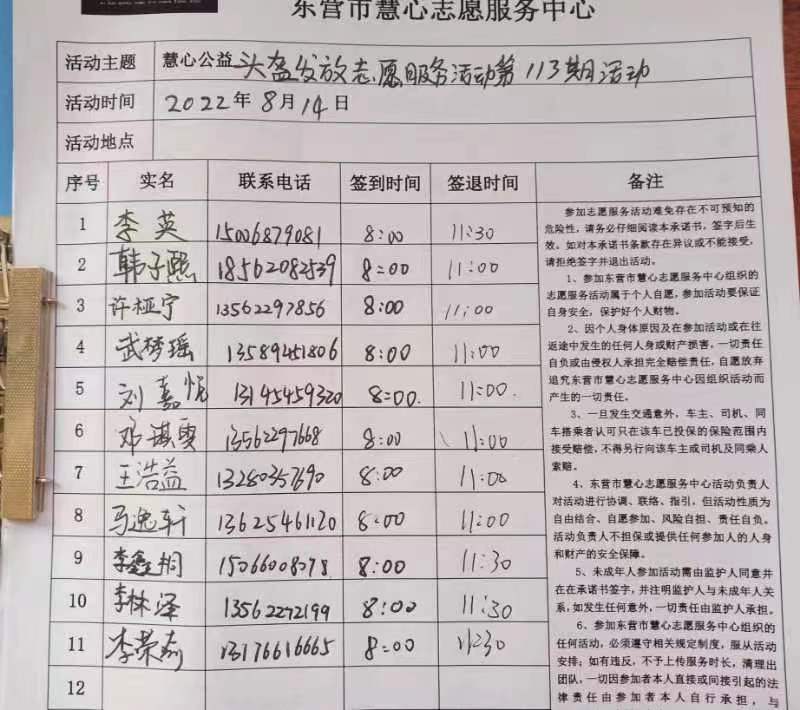 东营市慧心志愿服务中心
活动主题 慧心公益头盔发放志愿服务活动第113期活动
活动时间 2022年8月14日
活动地点
序号 实名 联系电话 签到时间 签退时间 备注
1 李英 15006879081 8:00 11:30
2 韩子熙 18562082539 8:00 11:00
3 许桠宁 13562297856 8:00 11:00
4 武梦瑶 13589451806 8:00 11:00
5 刘嘉悦 13145459320 8:00 11:00
6 邓淇雯 13562297668 8:00 11:00
7 王浩益 13280357690 8:00 11:00
8 马逸轩 13625461120 8:00 11:00
9 李鑫桐 15066008078 8:00 11:30
10 李林泽 13562272199 8:00 11:30
11 李荣嘉 13176616665 8:00 11:30
12
参加志愿服务活动难免存在不可预知的
危险性，请务必仔细阅读本承诺书，签字后生
效。如对本承诺书条款存在异议或不能接受，
请拒绝签字并退出活动。
1、参加东营市慧心志愿服务中心组织的
志愿服务活动属于个人自愿，参加活动要保证
自身安全，保护好个人财物。
2、因个人身体原因及在参加活动或在往
返途中发生的任何人身或财产损害，一切责任
自负或由侵权人承担完全赔偿责任，自愿放弃
追究东营市慧心志愿服务中心因组织活动而
产生的一切责任。
3、一旦发生交通意外，车主、司机、同
车搭乘者认可只在该车已投保的保险范围内
接受赔偿，不得另行向该车主或司机及同乘人
索赔。
4、东营市慧心志愿服务中心活动负责人
对活动进行协调、联络、指引，但活动性质为
自由结合、自愿参加、风险自担、责任自负。
活动负责人不担保或提供任何参加人的人身
和财产的安全保障。
5、未成年人参加活动需由监护人同意并
在在承诺书签字，并注明监护人与未成年人关
系，如发生任何意外，一切责任由监护人承担。
6、参加东营市慧心志愿服务中心组织的
任何活动，必须遵守相关规定制度，服从活动
安排；如有违反，不予上传服务时长，清理出
团队，一切因参加者本人直接或间接引起的法
律责任由参加者本人自行承担，与